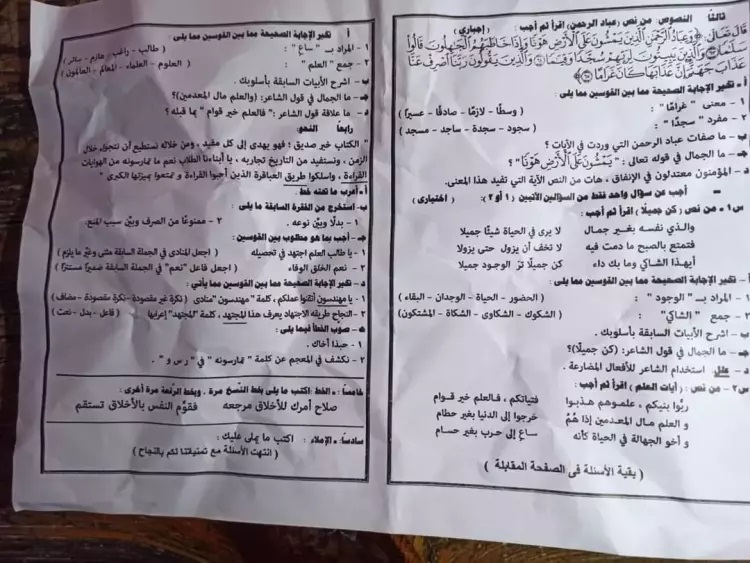 ثالثاً النصوص: من نص (عباد الرحمن) اقرأ ثم أجب : ( إجباري )
قال تعالى: ﴿وَعِبَادُ الرَّحْمَنِ الَّذِينَ يَمْشُونَ عَلَى الْأَرْضِ هَوْنًا وَإِذَا خَاطَبَهُمُ الْجَاهِلُونَ قَالُوا
سَلَامًا وَالَّذِينَ يَبِيتُونَ لِرَبِّهِمْ سُجَّدًا وَقِيَامًا وَالَّذِينَ يَقُولُونَ رَبَّنَا اصْرِفْ عَنَّا
عَذَابَ جَهَنَّمَ إِنَّ عَذَابَهَا كَانَ غَرَامًا﴾
أ - تخير الإجابة الصحيحة مما بين القوسين مما يلى :
١ - معنى "غرامًا" : ( وسطًا - لازمًا - صادقًا - عسيرًا )
٢ - مفرد "سجدًا" : ( سجود - سجدة - ساجد - مسجد )
ب - ما صفات عباد الرحمن التي وردت في الآيات ؟
جـ - ما الجمال في قوله تعالى : "يَمْشُونَ عَلَى الْأَرْضِ هَوْنًا" ؟
د - المؤمنون معتدلون في الإنفاق ، هات من النص الآية التي تفيد هذا المعنى.
أجب عن سؤال واحد فقط من السؤالين الآتيين ( ١ أو ٢ ) : ( اختيارى )
س١ - من نص ( كن جميلًا ) اقرأ ثم أجب :
والذي نفسه بغير جمال لا يرى في الحياة شيئًا جميلا
فتمتع بالصبح ما دمت فيه لا تخف أن يزول حتى يزولا
أيهذا الشاكي وما بك داء كن جميلًا تر الوجود جميلا
أ - تخير الإجابة الصحيحة مما بين القوسين مما يلى :
١ - المراد بـ "الوجود" : ( الحضور - الحياة - الوجدان - البقاء )
٢ - جمع "الشاكي" : ( الشكوك - الشكاوى - الشكاة - المشتكون )
ب - اشرح الأبيات السابقة بأسلوبك.
جـ - ما الجمال في قول الشاعر: (كن جميلًا)؟
د - علل. استخدام الشاعر للأفعال المضارعة .
س٢ - من نص : ( آيات العلم ) اقرأ ثم أجب :
ربُّوا بنيكم ، علموهم هذبوا فتياتكم ، فالعلم خير قوام
و العلم مال المعدمين إذا هُمُ خرجوا إلى الدنيا بغير حطام
و أخو الجهالة في الحياة كأنه ساعٍ إلى حرب بغير حسام
( بقية الأسئلة فى الصفحة المقابلة )
أ تخير الإجابة الصحيحة مما بين القوسين مما يلى :
١ - المراد بـ "ساع" : ( طالب - راغب -
٢ - جمع "العلم" : ( العلوم - العلماء - المعالم - العالمون )
ب - اشرح الأبيات السابقة بأسلوبك.
جـ - ما الجمال في قول الشاعر: (والعلم مال المعدمين)؟
د - ما علاقة قول الشاعر : "فالعلم خير قوام" بما قبله ؟
رابعاً النحو:
" الكتاب خير صديق ؛ فهو يهدى إلى كل مفيد ، ومن خلاله نستطيع أن نتجول خلال
الزمن ، ونستفيد من التاريخ تجاربه ، يا أبناءنا الطلاب نعم ما تمارسونه من الهوايات
القراءة ، واسلكوا طريق العباقرة الذين أحبوا القراءة و تمتعوا بميزتها الكبرى "
أ - أعرب ما تحته خط .
ب - استخرج من الفقرة السابقة ما يلى :
١ - بدلًا وبيِّن نوعه . ٢ - ممنوعًا من الصرف وبيِّن سبب المنع.
جـ - أجب بما هو مطلوب بين القوسين :
١ - يا طالب العلم اجتهد في تحصيله ( اجعل المنادى في الجملة السابقة مثنى وغيِّر ما يلزم )
٢ - نعم الخلق الوفاء ( اجعل فاعل "نعم" في الجملة السابقة ضميرًا مستترًا )
د - تخير الإجابة الصحيحة مما بين القوسين مما يأتي :
١ - يا مهندسون أتقنوا عملكم ، كلمة "مهندسون "منادى ( نكرة غير مقصودة - نكرة مقصودة - مضاف )
٢ - النجاح طريقه الاجتهاد يعرف هذا المجتهد ، كلمة "المجتهد" إعرابها ( فاعل - بدل - نعت )
هـ - صوب الخطأ فيما يلى :
١ - حبذا أخاك .
٢ - نكشف في المعجم عن كلمة " تمارسونه " في " ر س و " .
خامساً: - الخط :اكتب ما يلى بخط النسخ مرة ، وبخط الرقعة مرة أخرى :
صلاح أمرك للأخلاق مرجعه فقوِّم النفس بالأخلاق تستقم
سادساً: - الإملاء : اكتب ما يملى عليك :
( انتهت الأسئلة مع تمنياتنا لكم بالنجاح )